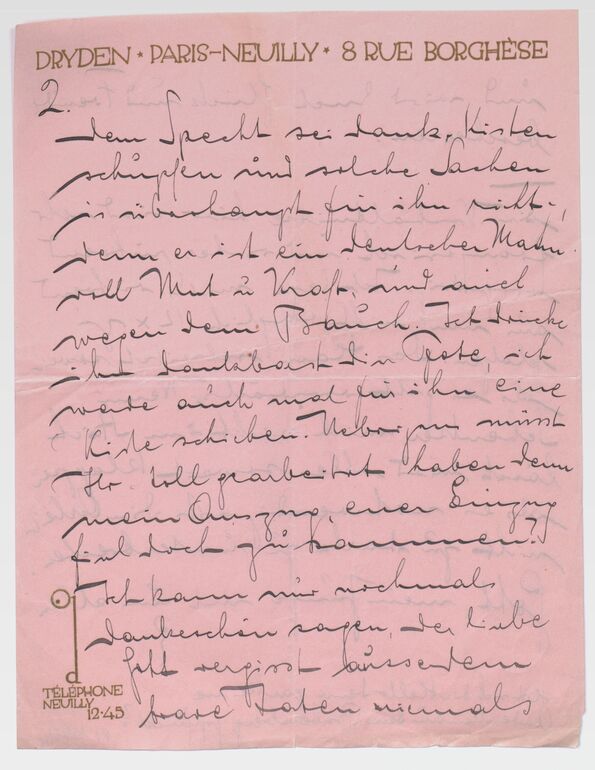 DRYDEN * PARIS-NEUILLY * 8 RUE BORGHÈSE
2.
dem Specht sei dank. Kisten
schupfen und solche Sachen
is überhaupt für ihn nicht,
denn er ist ein deutscher Mann
voll Mut u Kraft, und auch
wegen dem Bauch. Ich drücke
ihm dankbarst die Pfote, ich
werde auch mal für ihn eine
Kiste schieben. Uebrigens müsst
Ihr toll gearbeitet haben denn
mein Auszug, euer Einzug
fiel doch zusammen?
Ich kann nur nochmals
dankeschön sagen, der liebe
Gott vergisst ausserdem
brave Taten niemals
TÉLÉPHONE
NEUILLY
12-45